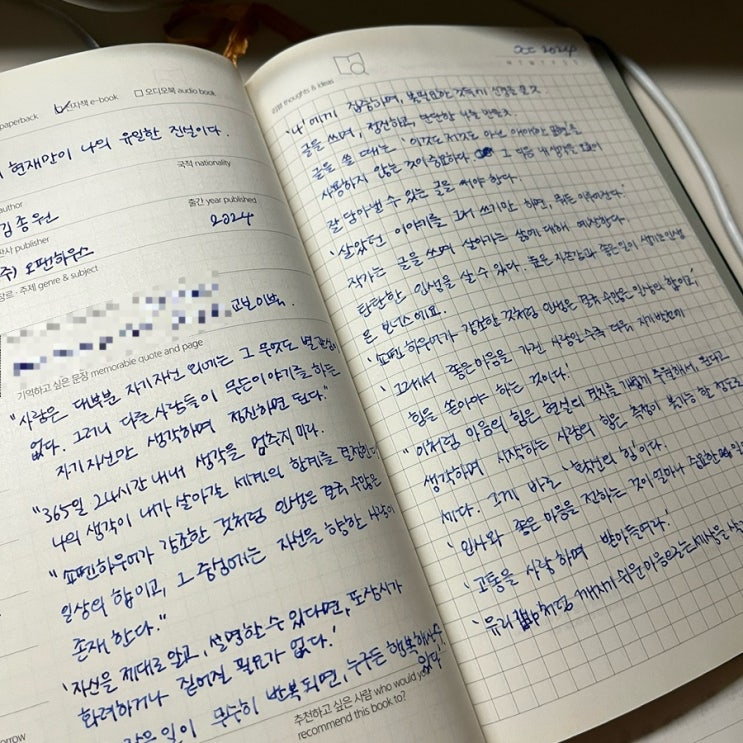 paperback ☑ 전자책 e-book ☐ 오디오북 audio book
현재만이 나의 유일한 진실이다.
국적 nationality
author
김종원
출간 year published
2024
publisher
주) 오팬하우스
장르·주제 genre & subject
교보이북.
기억하고 싶은 문장 memorable quote and page
"사람은 대부분 자기 자신 외에는 그 무엇도 별 관심이
없다. 그러니 다른 사람들이 무슨 이야기를 하든
자기 자신만 생각하며 정진하면 된다."
"365일 24시간 내내 생각을 멈추지 마라.
나의 생각이 내가 살아가는 세계의 한계를 결정한다
"쇼펜하우어가 강조한 것처럼 인생은 결국 수많은
일상의 합이고, 그 중심에는 자신을 향한 사랑이
존재한다."
'자신을 제대로 알고, 설명할 수 있다면, 또 상사가
화려하거나 길어질 필요가 없다.'
작은 일이 무수히 반복되면, 누구든 행복해질 수
있다
추천하고 싶은 사람 who would you
recommend this book to?
OCT 2024
M T W T F S S
리뷰 thoughts & ideas
'나'에게 집중하며, 불필요한 것에서 신경을 끄자
글을 쓰며, 정진하고, 단단한 나를 만들자.
글을 쓸 때는 '이것도 저것도 아닌 애매한 표현'을
사용하지 않는 것이 중요하다. 그 다음 내 생각을
잘 담아낼 수 있는 글을 써야 한다.
'살았던 이야기를 그저 쓰기만 하면, 뭐든 이루어진다.'
작가는 글을 쓰며 살아가는 삶에 대해 예찬한다.
탄탄한 인생을 살 수 있다. 높은 자존감과 좋은 일이 생기는 인생
은 보너스예요.
'쇼펜하우어가 강조한 것처럼 인생은 결국 수많은 일상의 합이고,
'그래서 좋은 마음을 가진 사람일수록 더욱 자기 발전에
힘을 쏟아야 하는 것이다.'
"이처럼 마음의 힘은 현실의 벽을 가볍게 추월해서, 된다고
생각하며 시작하는 사람의 힘은 측정이 불가능할 정도로
세다. 그게 바로 '확언의 힘'이다.
'인사와 좋은 마음을 전하는 것이 얼마나 중요한
'고통을 사랑하며 받아들여라.'
'유리컵처럼 깨지기 쉬운 마음으로는 세상을